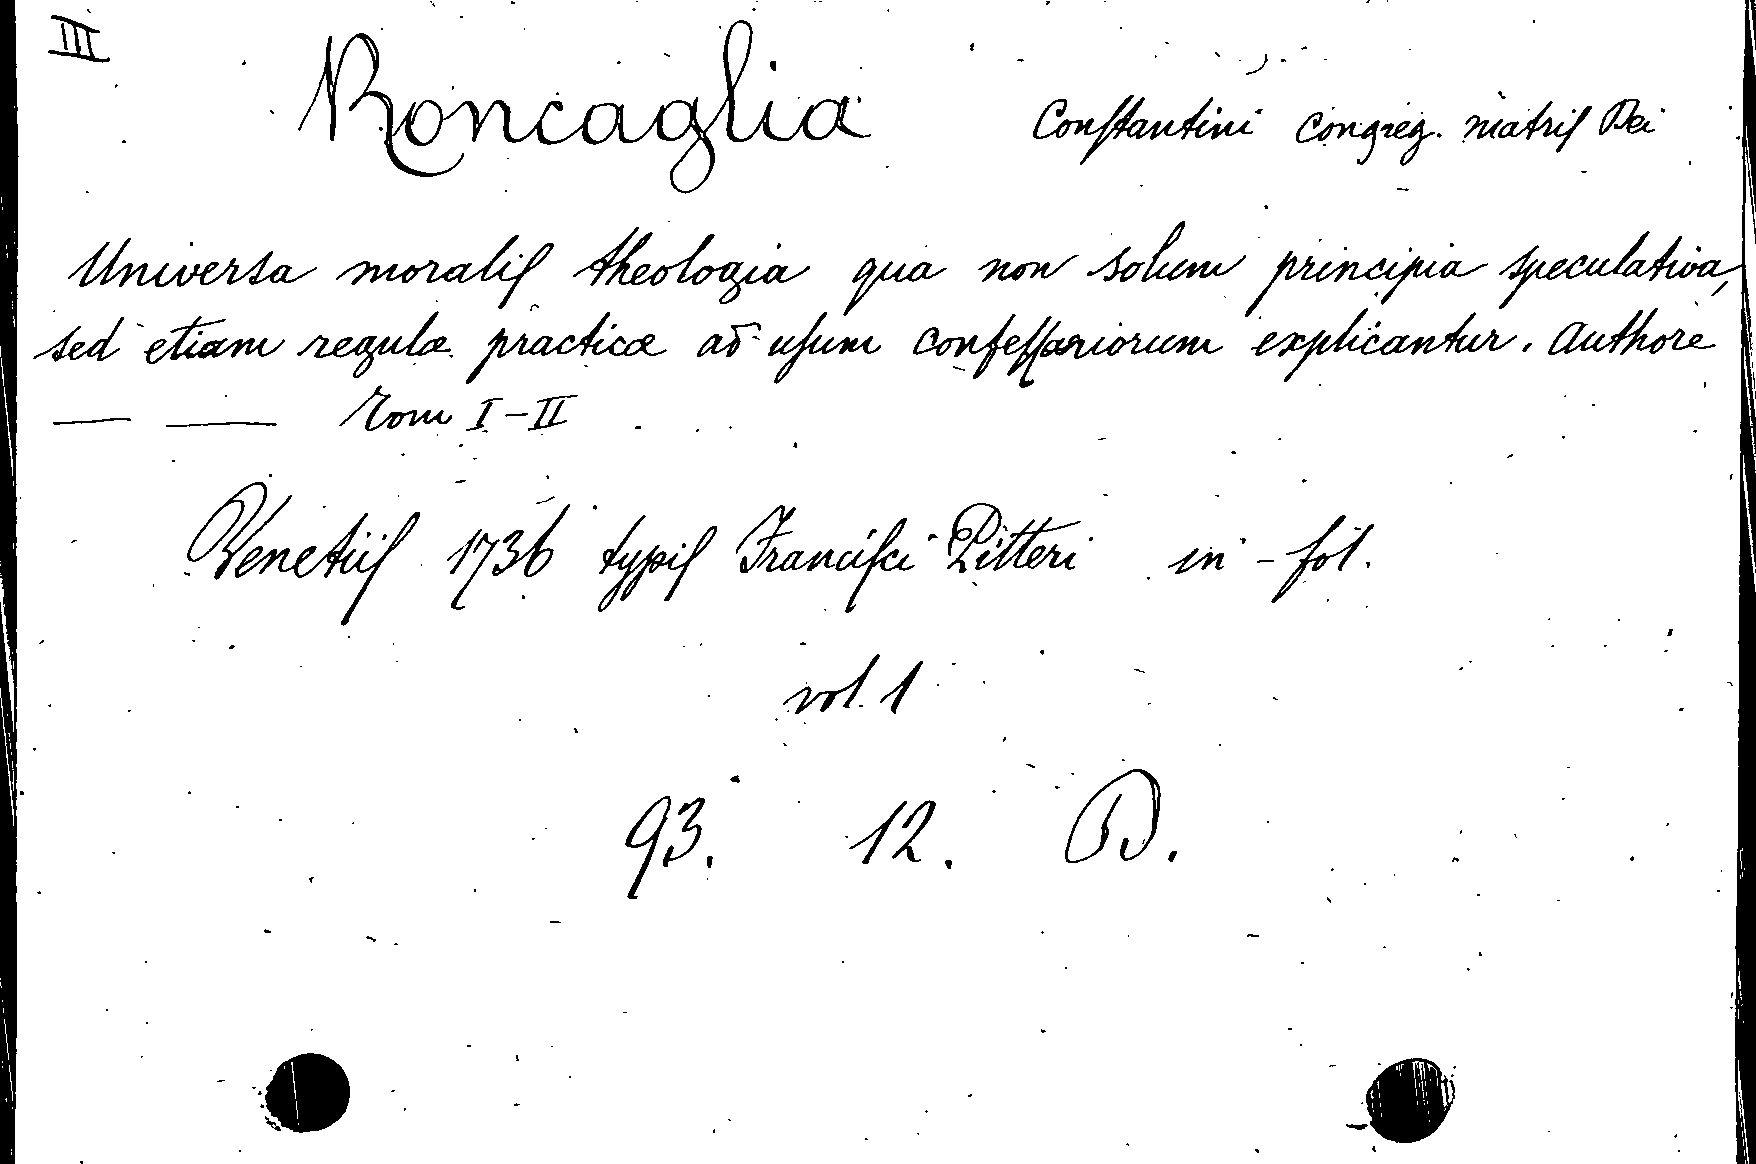 III
Roncaglia Constantini Congreg. Matris Dei
Universa moralis theologia qua non solum principia speculativa,
sed etiam regulæ practicæ ad usum confessariorum explicantur. Authore
— — Tom I-II
Venetiis 1736 typis Francisci Pitteri in-fol.
vol. 1
93. 12. D.